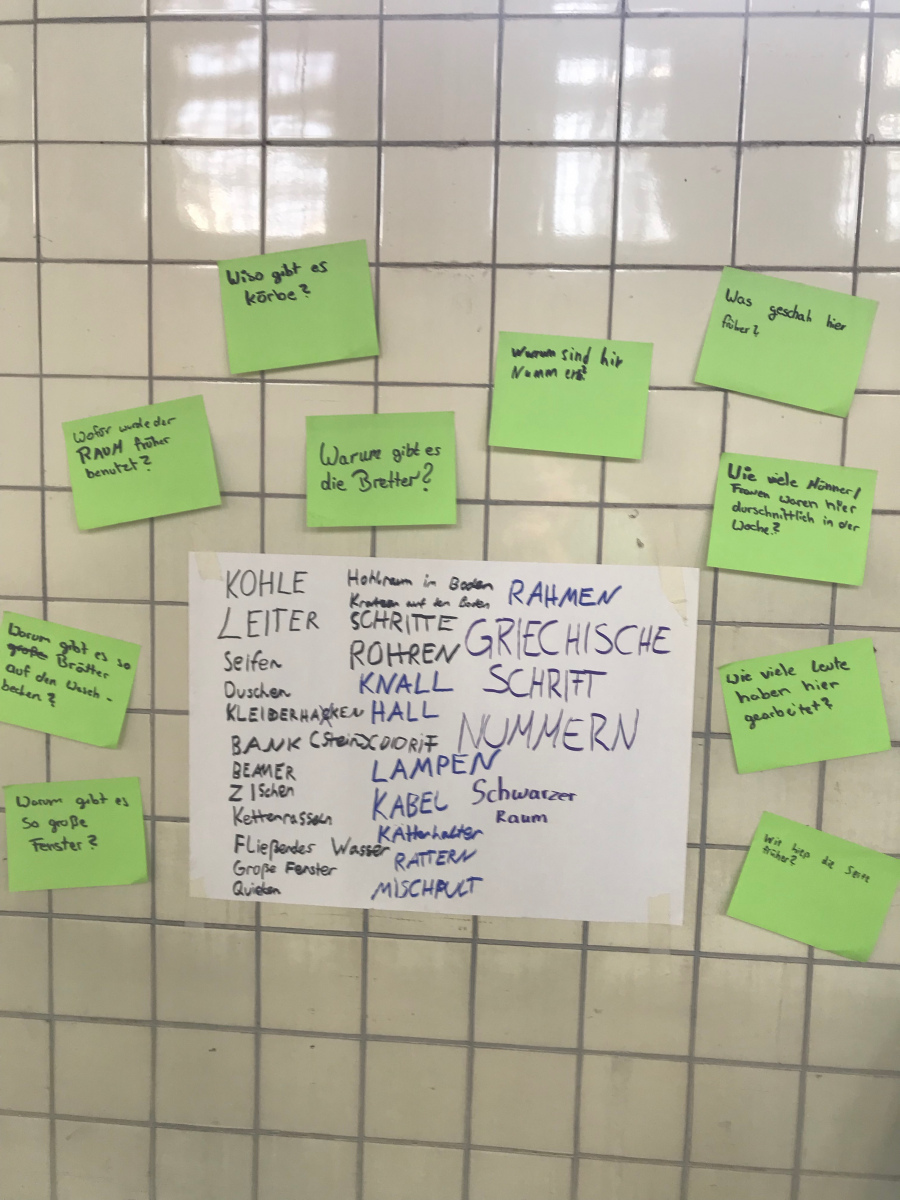 Wiso gibt es
körbe?
Was geschah hier
früher?
Warum sind hir
Nummern?
Woför wurde der
RAUM früher
benutzt?
Warum gibt es
die Bretter?
Wie viele Männer/
Frauen waren hier
durschnittlich in der
Woche?
Warum gibt es so
große Brötter
auf den Wasch-
becken?
Wie viele Leute
haben hier
gearbeitet?
Warum gibt es
so große
Fenster?
Wie hieß die Seife
früher?
KOHLE
LEITER
Seifen
Duschen
KLEIDERHAKEN
BANK (Stein)
BEAMER
ZISchen
Kettenrasseln
Fließendes Wasser
Große Fenster
Quieken
Hohlraum in Boden
Kratzen auf den Boden
SCHRITTE
ROHREN
KNALL
HALL
LAMPEN
KABEL
KAttenhalter
RATTERN
MISCHPULT
RAHMEN
GRIECHISCHE
SCHRIFT
NUMMERN
Schwarzer
Raum